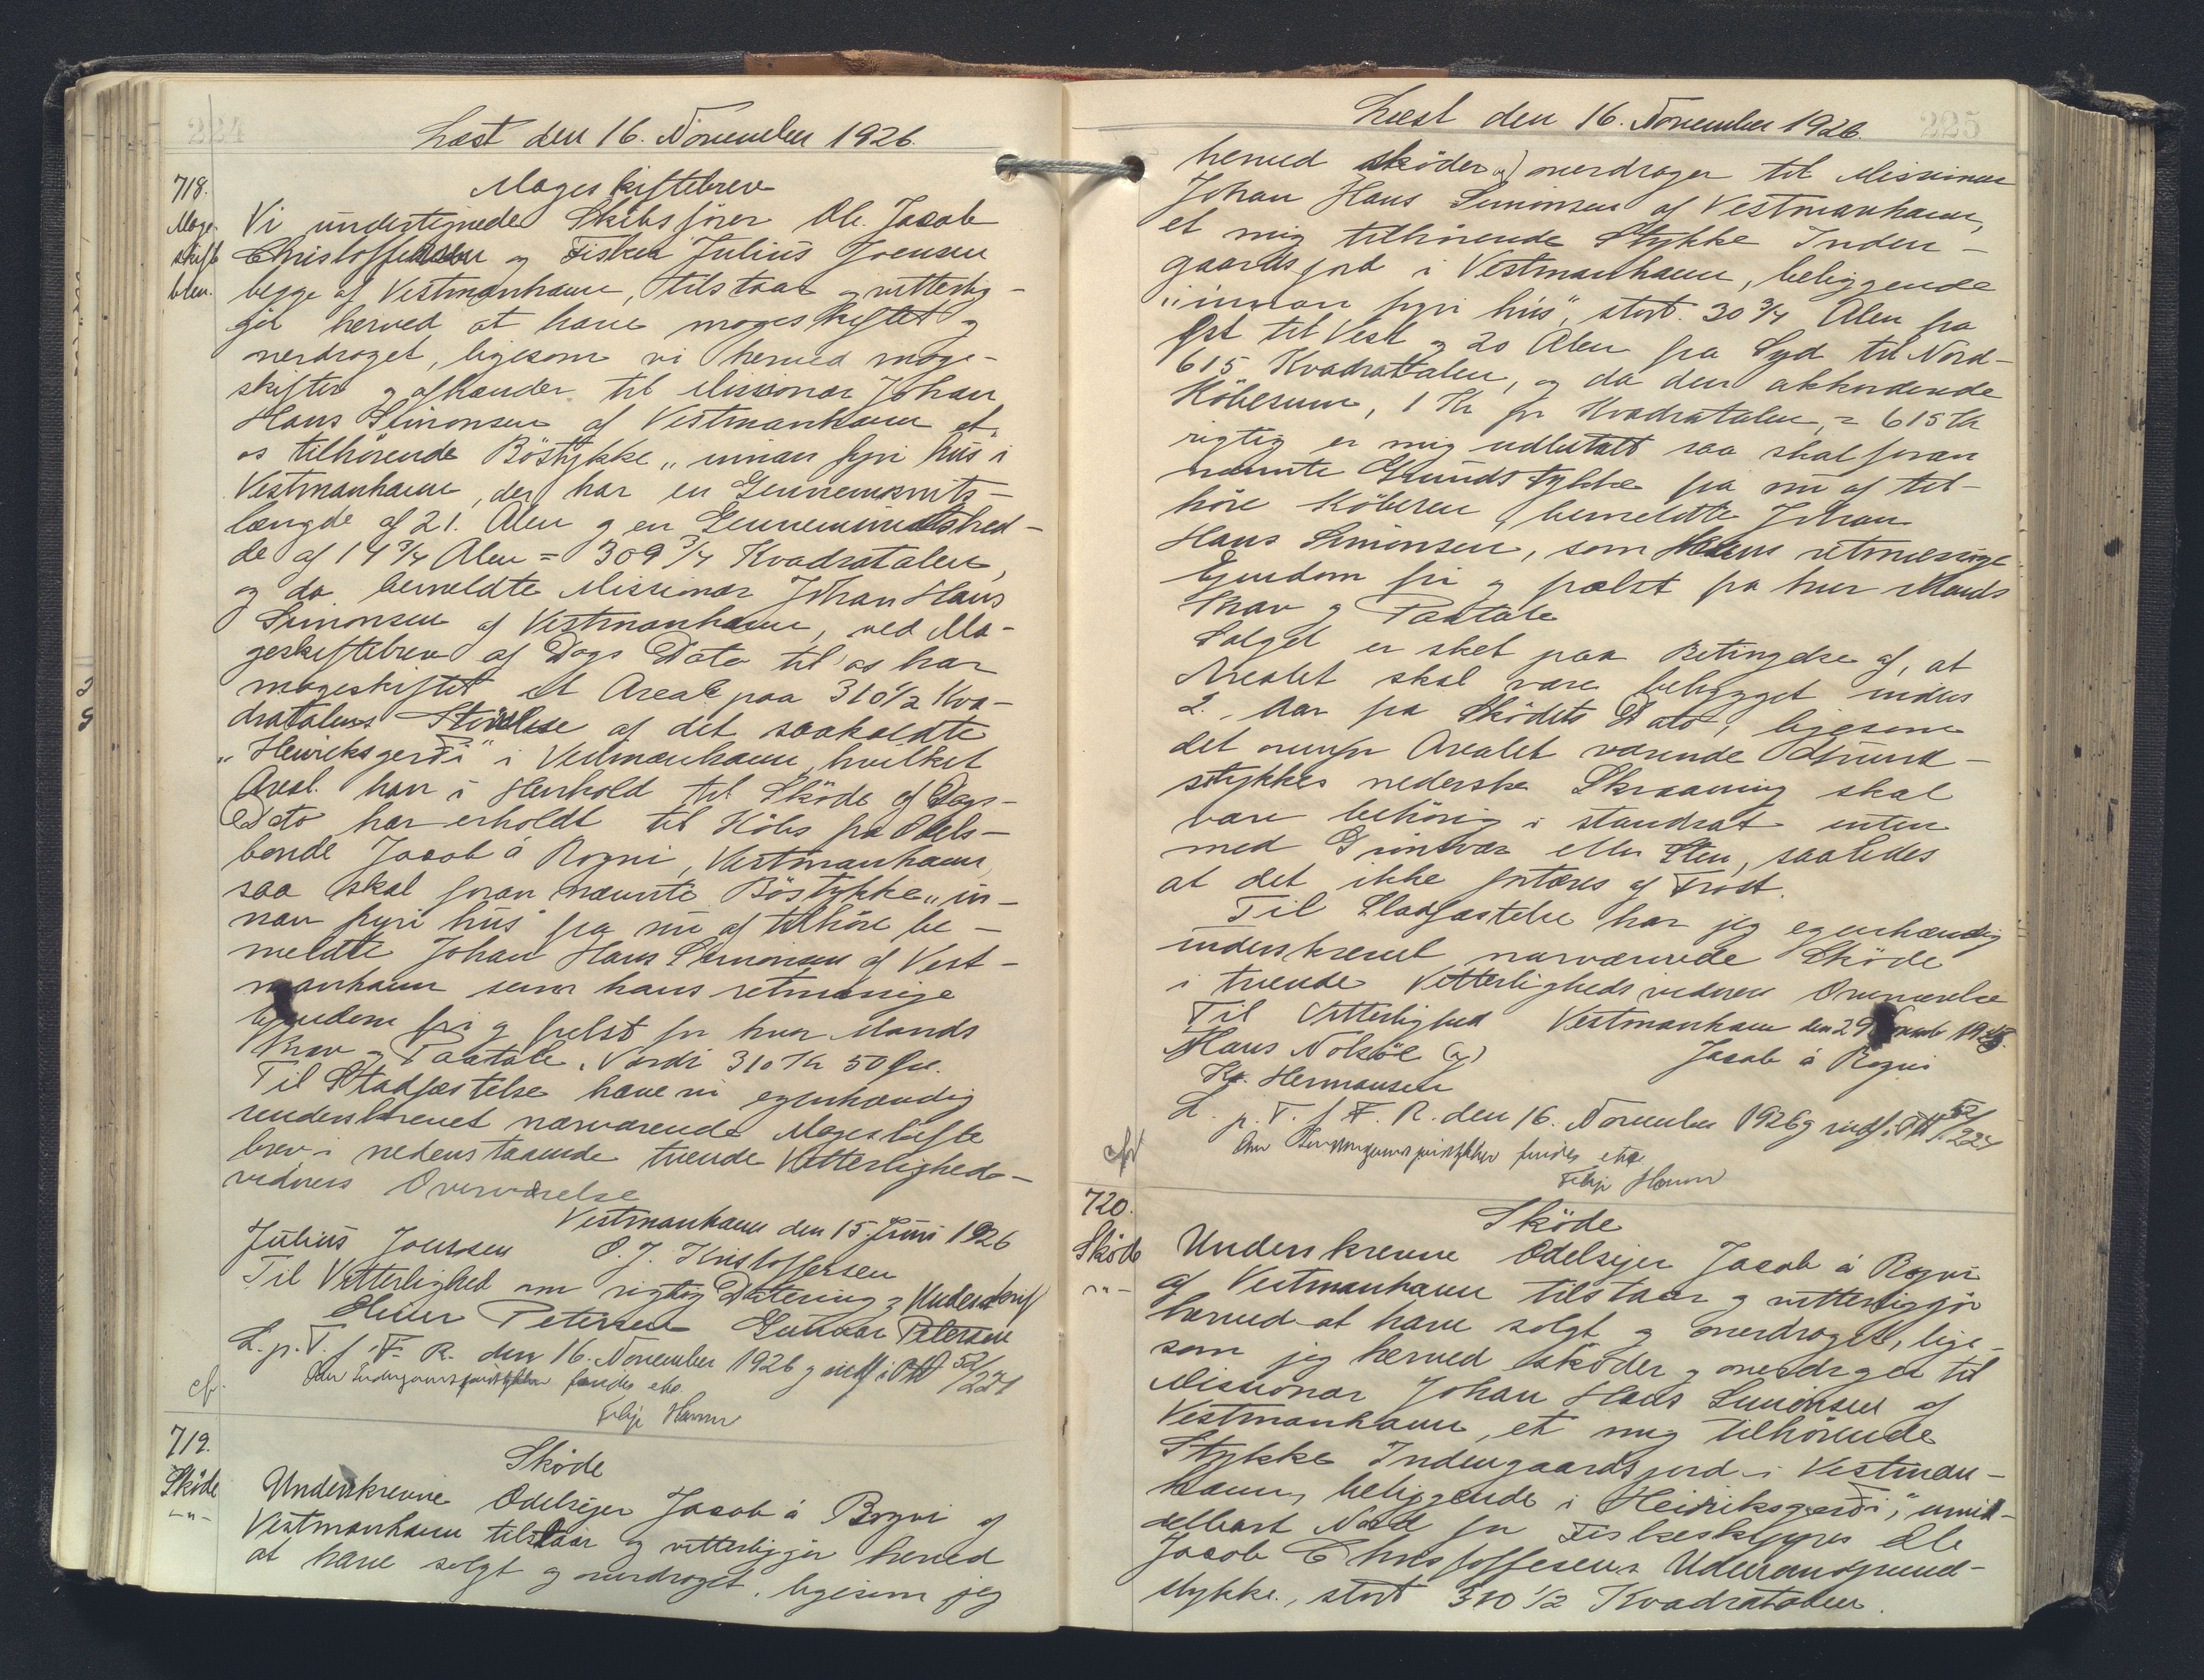 224
Læst den 16. November 1926.
718.
Mageskiftebrev
Mage-
skift
brev.
Vi undertegnede Skibsfører Ole Jacob
Christoffersen og Fisker Julius Joensen
begge af Vestmanhavn, tilstaar og vitterlig-
gör herved at have mageskiftet og
overdraget, ligesom vi herved mage-
skifter og afhænder til Missionær Johan
Hans Simonsen af Vestmanhavn et
os tilhörende Böstykke „innan fyri hús" i
Vestmanhavn, der har en Gennemsnits-
længde af 21. Alen og en Gennemsnitsbred-
de af 14 3/4 Alen = 309 3/4 Kvadratalen,
og da bemeldte Missionær Johan Hans
Simonsen af Vestmanhavn, ved Ma-
geskiftebrev af Dags Dato til os har
mageskiftet et Areal paa 310 1/2 Kva-
dratalens Störrelse af det saakaldte
„Heinriksgerði" i Vestmanhavn, hvilket
Areal han i Henhold til Sköde af Dags-
Dato har erholdt til Köbs fra Odels-
bonde Jacob á Rógvi, Vestmanhavn,
saa skal foran nævnte Böstykke „in-
nan fyri hús" fra nu af tilhöre be-
meldte Johan Hans Simonsen af Vest-
manhavn som hans retmæssige
Ejendom fri og frelst for hver Mands
Krav og Paatale. Værdi 310 Kr 50 Öre.
Til Stadfæstelse have vi egenhændig
underskrevet nærværende Mageskifte
brev i nedenstaaende tvende Vitterligheds-
vidners Overværelse
Vestmanhavn den 15. Juni 1926
Julius Joensen O. J. Kristoffersen
Til Vitterlighed om rigtig Datering og Underskrift
Petersen Gunnar Petersen
L. p. T. f. F. R. den 16. November 1926 og indf. i 52/221
cf.
719.
Sköde
Sköde
-"-
Underskrevne Odelsejer Jacob á Rógvi af
Vestmanhavn tilstaar og vitterliggjör herved
at have solgt og overdraget, ligesom jeg
225
Læst den 16. November 1926.
herved sköder og overdrager til Missionær
Johan Hans Simonsen af Vestmanhavn,
et mig tilhörende Stykke Inden-
gaardsjord i Vestmanhavn, beliggende
„innan fyri hús", stort 30 3/4 Alen fra
Öst til Vest og 20 Alen fra Syd til Nord-
615 Kvadratalen, og da den akkorderede
Köbesum, 1 Kr pr Kvadratalen, = 615 Kr
rigtig er mig udbetalt saa skal foran
nævnte Grundstykke fra nu af til-
höre Köberen bemeldte Johan
Hans Simonsen, som hans retmæssige
Ejendom fri og frelst fra hver Mands
Krav og Paatale
Salget er sket paa Betingelse af, at
Arealet skal være bebygget inden
2. Aar fra Sködets Dato, ligesom
det ovenfor Arealet værende Grund-
stykkes nederste Skraaning skal
være behörig i standsat enten
med Grönsvær eller Sten, saaledes
at det ikke fortæres af Frost.
Til Stadfæstelse har jeg egenhændig
underskrevet nærværende Sköde
i tvende Vitterlighedsvidners Overværelse
Til Vitterlighed Vestmanhavn den 29
Hans Nolsöe Jacob á Rógvi
Hermansen
L. p. T. f. F. R. den 16. November 1926 og indf. i 52/224
cf.
720.
Sköde
Sköde
-"-
Underskrevne Odelsejer Jacob á Rógvi
af Vestmanhavn tilstaar og vitterliggjör
herved at have solgt og overdraget, lige-
som jeg herved sköder og overdrager til
Missionær Johan Hans Simonsen af
Vestmanhavn, et mig tilhörende
Stykke Indengaardsjord i Vestman-
havn, beliggende i „Heinriksgerði", umid-
delbart Nord for Fiskeskipper Ole
Jacob Christoffersens Udlevansgrund-
stykke, stort 310 1/2 Kvadratalen.